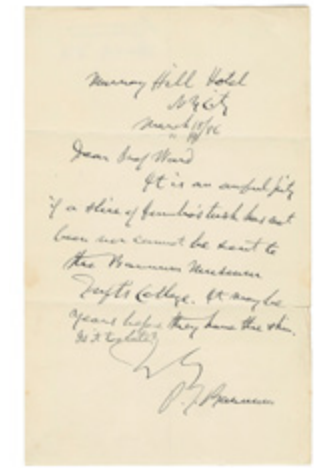 Murray Hill Hotel
N.Y. City
March 18/86
Dear Prof Ward
It is an awful pity
if a slice of Jumbo's tusk has not
been nor cannot be sent to
the Barnum Museum
Tufts College. It may be
years before they have the skin.
Is it too late?
P.T. Barnum